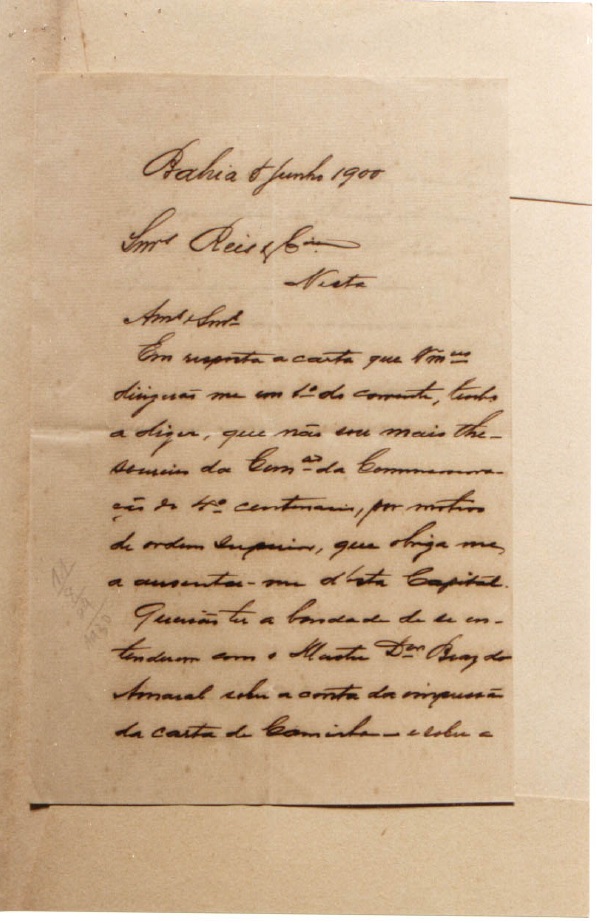 Bahia 8 Junho 1900
Snrs Reis & Cia
Nesta
Ams e Snrs
Em resposta a carta que Vmces
dirigirão me em 1º do corrente, tenho
a dizer, que não sou mais the-
soureiro da Comão da Commemora-
ção do 4º centenario, por motivo
de ordem superior, que obriga me
a ausentar-me d'esta Capital.
Queirão ter a bondade de se en-
tenderem com o Illustre Dor Braz do
Amaral sobre a conta da impressão
da carta de Caminha — e sobre a